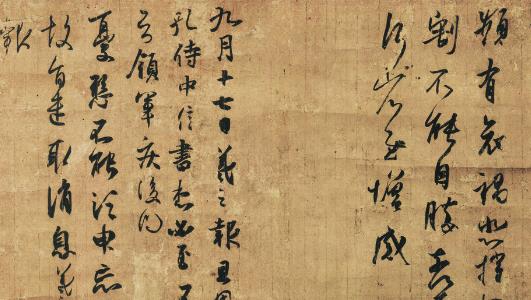 頻有哀禍悲摧
割不能自勝奈
何奈何省慰增感
九月十七日羲之報且因
孔侍中信書想必至不
知領軍疾後問
憂懸不能須臾忘
故旨遣取消息羲
報